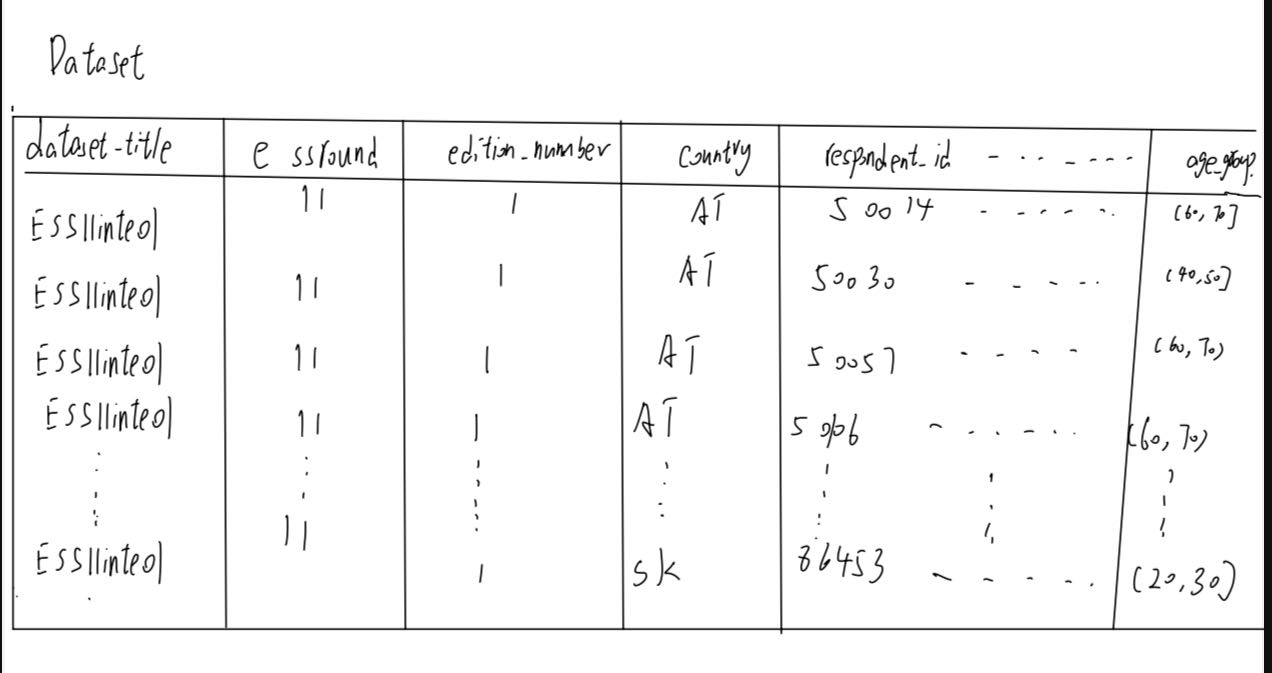 Dataset
dataset-title e ssround edition_number Country respondent_id - . . - . - . . age_group.
ESS11inte01 11 1 AT 50014 - - - - . . (60, 70]
ESS11inte01 11 1 AT 50030 - - - . . (40,50]
ESS11inte01 11 1 AT 50057 - - - - (60, 70)
ESS11inte01 11 1 AT - . . - . . (60, 70)
ESS11inte01 11 1 sk 86453 - - - . . (20,30)